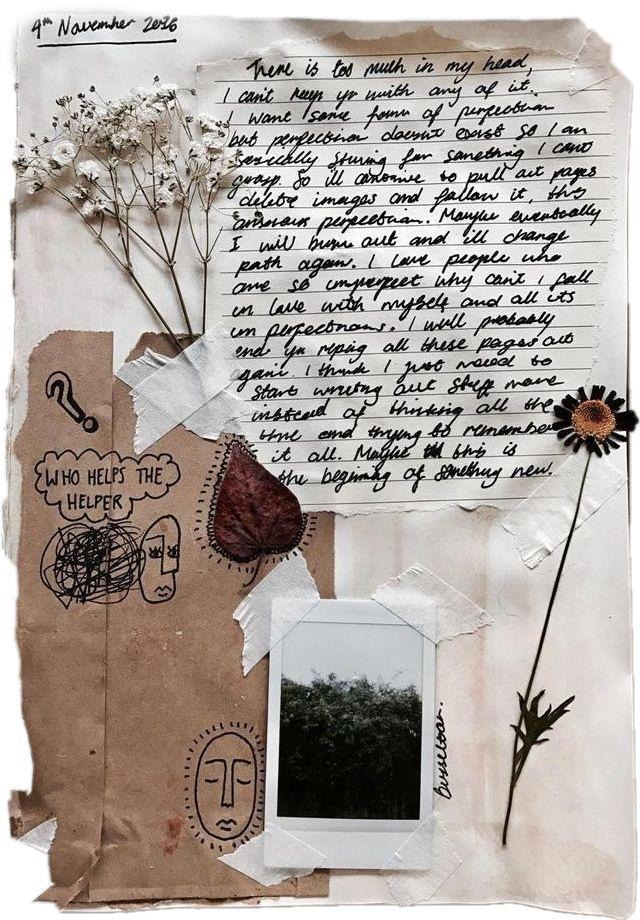 4th November 2016
There is too much in my head,
I can't keep up with any of it.
I want some form of perfection
but perfection doesnt exist so I am
basically striving for something I cant
grasp. So ill continue to pull out pages
delete images and follow it, this
perfection. Maybe eventually
I will burn out and ill change
path again. I love people who
are so imperfect why cant I fall
in love with myself and all its
imperfections. I will probably
end up riping all these pages out
again. I think I just need to
start writing out stuff more
instead of thinking all the
time and trying to remember
it all. Maybe this is
the begining of something new.
?
WHO HELPS THE
HELPER
Busselton.